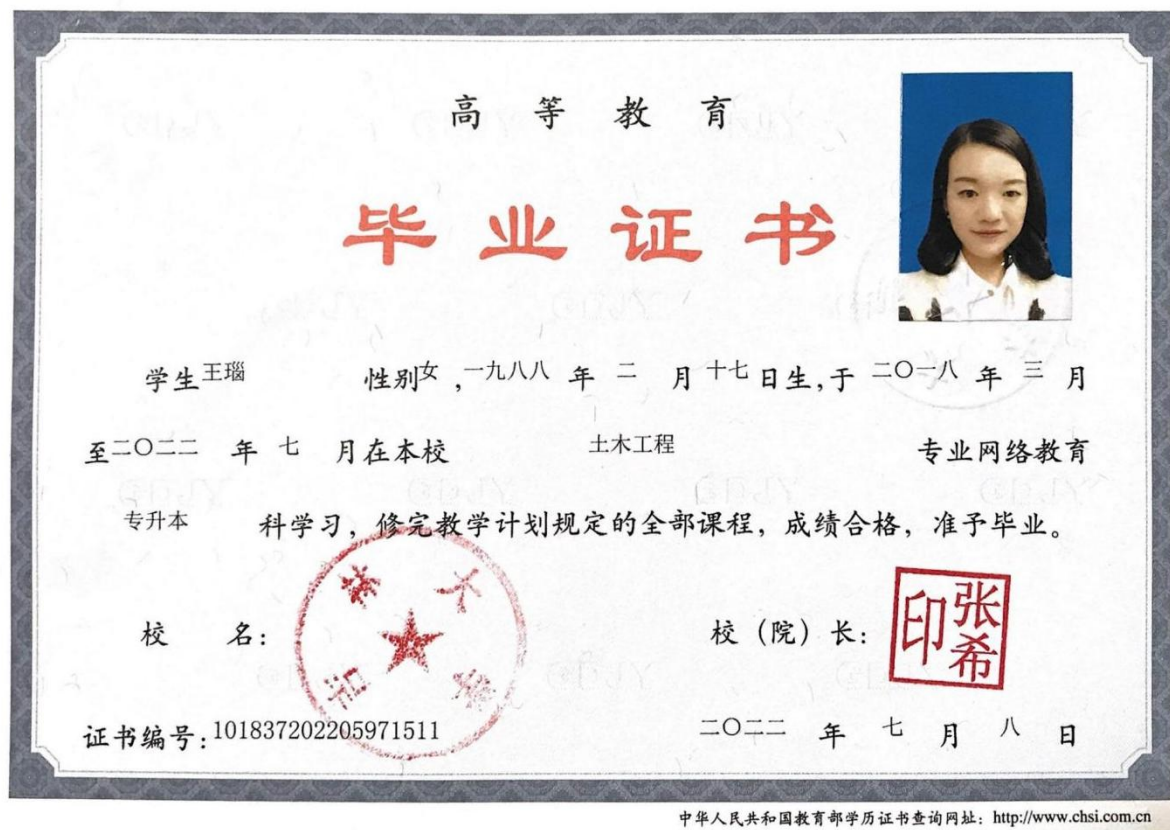 高等教育
毕业证书
学生 王瑙 性别 女 ,一九八八 年 二 月 十七 日生,于 二〇一八 年 三 月
至二〇二二 年 七 月在本校 土木工程 专业网络教育
专升本 科学习，修完教学计划规定的全部课程，成绩合格，准予毕业。
吉林大学
校 名：
校（院）长：
张希印
证书编号：101837202205971511
二〇二二 年 七 月 八 日
中华人民共和国教育部学历证书查询网址：http://www.chsi.com.cn